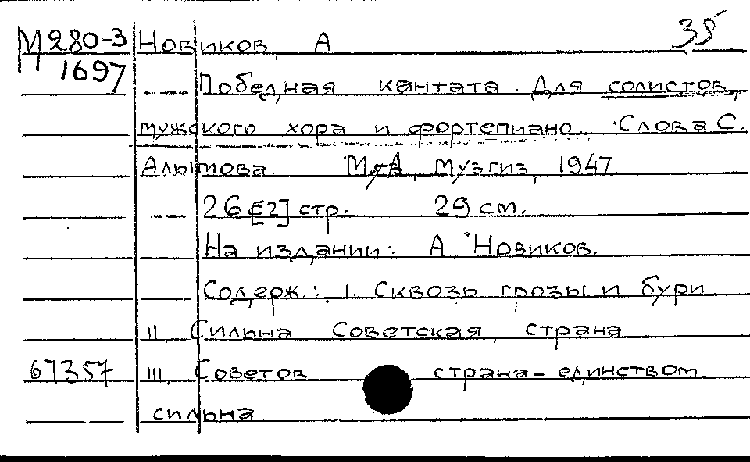 М280-3 Новиков, А 38
1697 Победная кантата. Для солистов,
мужского хора и фортепиано. Слова С.
Алымова М-Л, Музгиз, 1947
26 [2] стр. 29 см.
На издании: А. Новиков.
Содерж.: I Сквозь грозы и бури
II Сильна Советская страна
67357 III Советов страна - единством
сильна